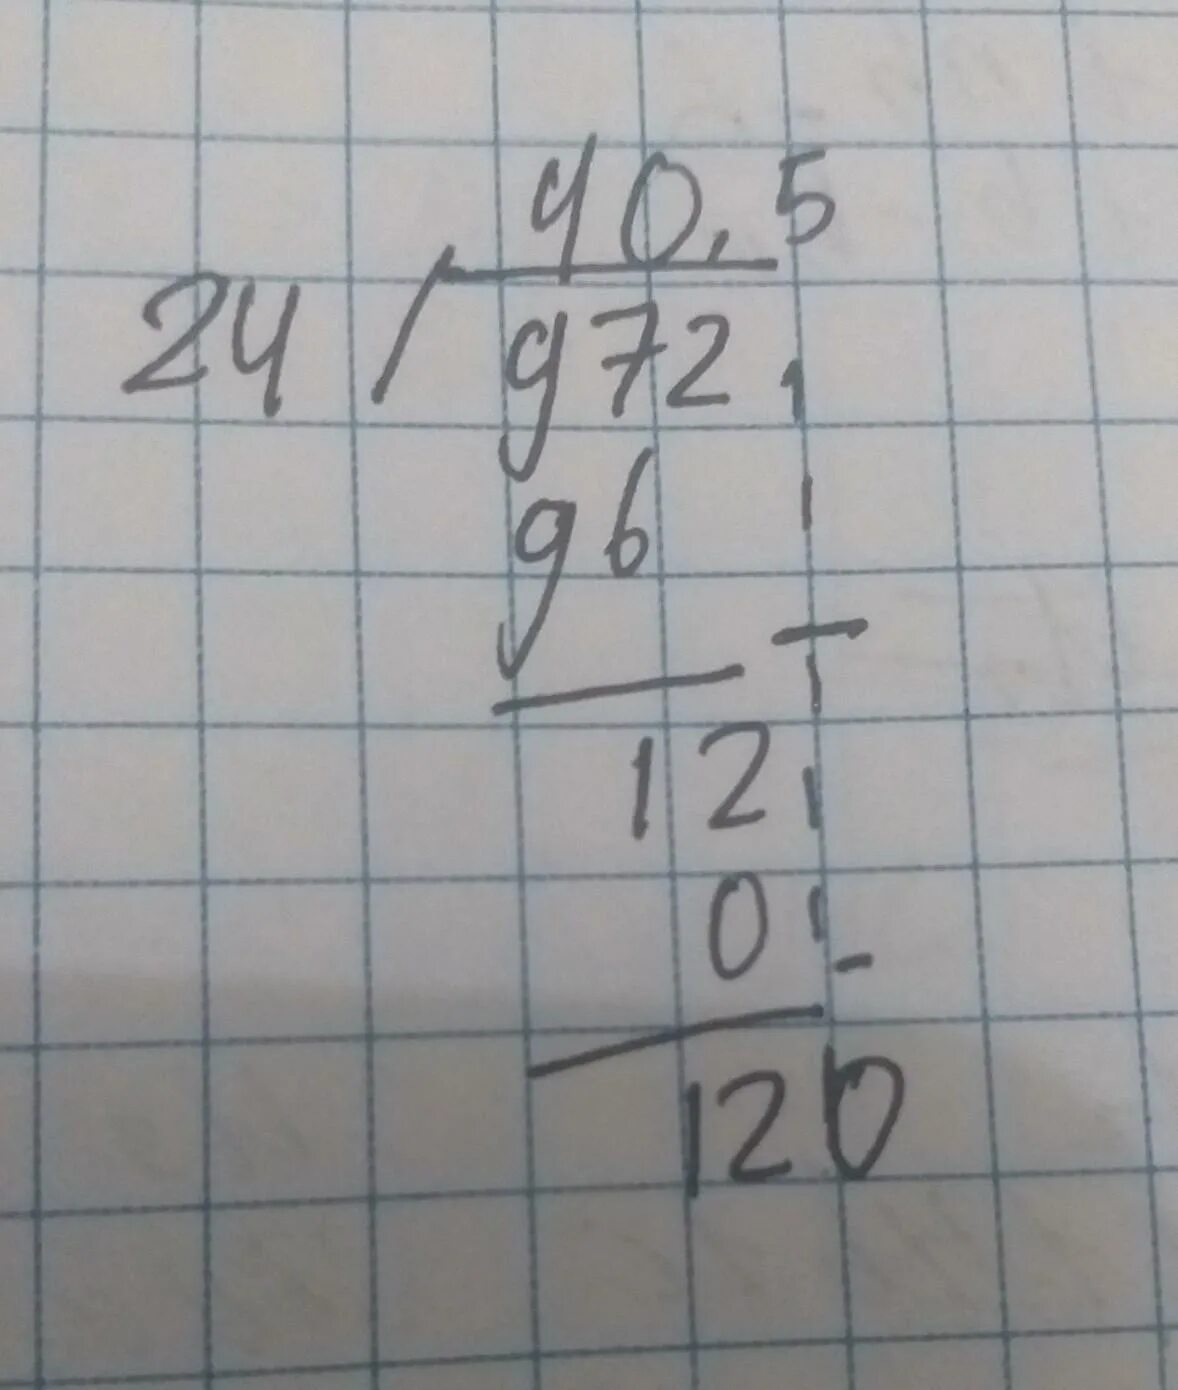 40,5
24 / 972
96
12
0
120